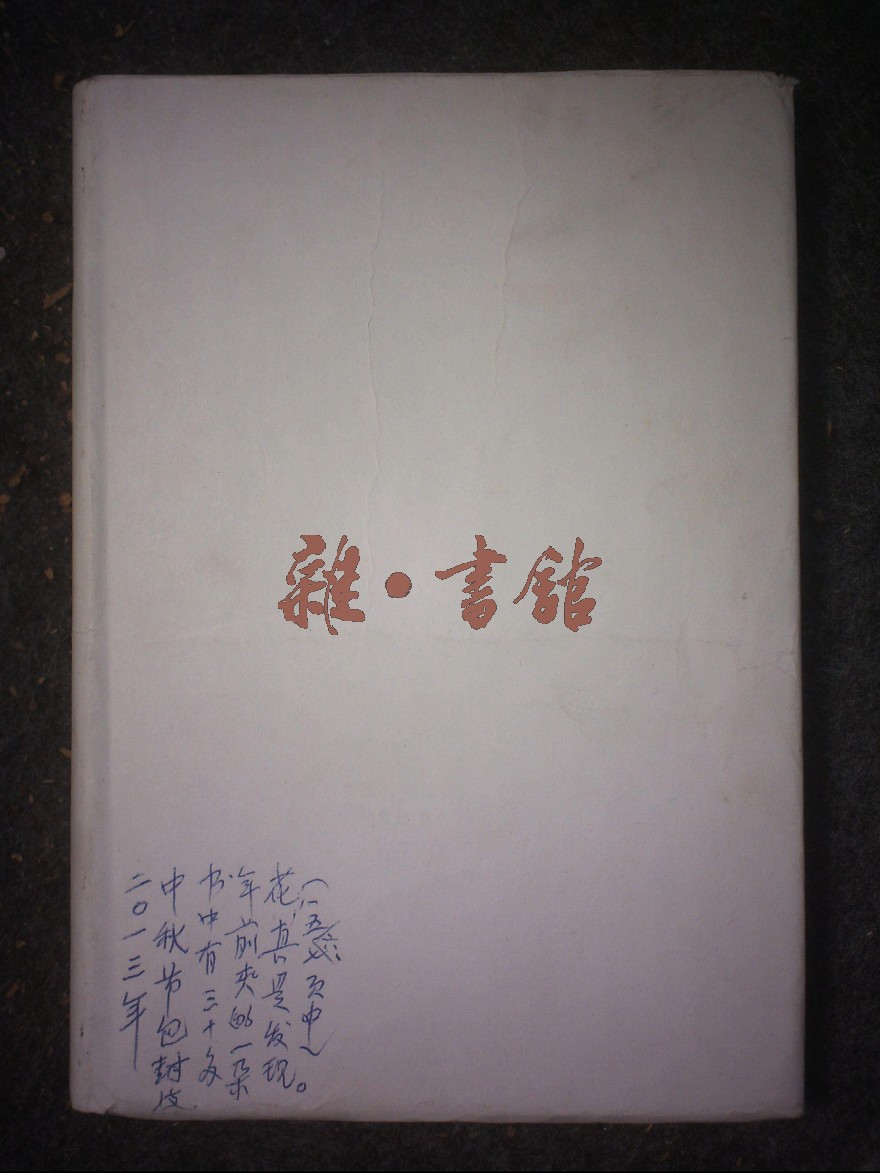 雜·書舘
二〇一三年
中秋节包封皮
书中有三十多
年前夹的一朵
花，真是发现。
（一五页中）